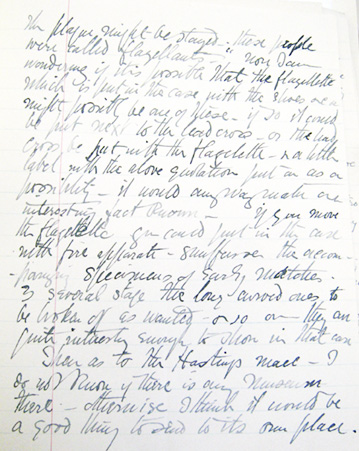 the plague might be stayed - these people
were called "flagellants" - now I am
wondering if it is possible that the "flagellette"
which is put in the case with the shoes
might possibly be one of these - if so it could
be put next to the lead cross - or the lead
cross be put with the flagellette - & a little
label with the above quotation just as a
possibility - it would anyway make an
interesting fact known - if you move
the flagellette you could put in the case
with fire apparats - snuffers the accom-
-panying specimens of early matches -
3 several stage the long curved ones to
be broken off as wanted - & so on - they are
quite interesting enough to show in that case
Then as to the Hastings mace - I
do not know if there is any museum
there - otherwise I think it would be
a good thing to send to its own place.